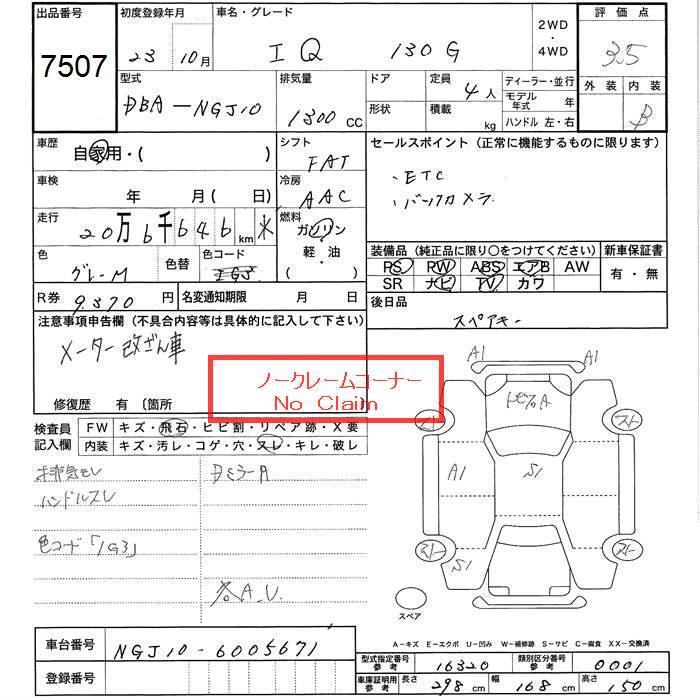 出品番号 初度登録年月 車名・グレード 2WD ・ 4WD 評価点
7507 23 10月 IQ 130G 3.5
型式 排気量 ドア 定員 4人 ディーラー・並行 外装 内装
DBA-NGJ10 1300CC 形状 積載 kg モデル年式 年 B
ハンドル 左・右
車歴 自家用・( ) シフト FAT セールスポイント (正常に機能するものに限ります)
車検 年 月( 日) 冷房 AAC ・ETC
・バックカメラ
走行 20万6千646km 燃料 ガソリン 軽・油 ( )
色 グレーM 色替 色コード 1G3
装備品 (純正品に限り○をつけてください) 新車保証書
PS PW ABS エアB AW 有・無
SR ナビ TV カワ
R券 9,370円 名変通知期限 月 日 後日品
スペアキー
注意事項申告欄 (不具合内容等は具体的に記入して下さい)
メーター改ざん車
ノークレームコーナー
No Claim
修復歴 有 〔箇所
検査員記入欄 FW キズ・飛石・ヒビ割・リペア跡・X要
内装 キズ・汚レ・コゲ・穴・スレ・キレ・破レ
排気モレ DミラーA
ハンドルスレ
色コード「1G3」
各A.U.
A1 A1
トビ石A
スレ スレ
A1 S1
スレ スレ
S1
A1
スペア
A-キズ E-エクボ U-凹み W-補修跡 S-サビ C-腐食 XX-交換済
車台番号 NGJ10-6005671
登録番号
型式指定番号 参考 16320 類別区分番号 参考 0001
車庫証明用 参考 長さ 298cm 幅 168cm 高さ 150cm